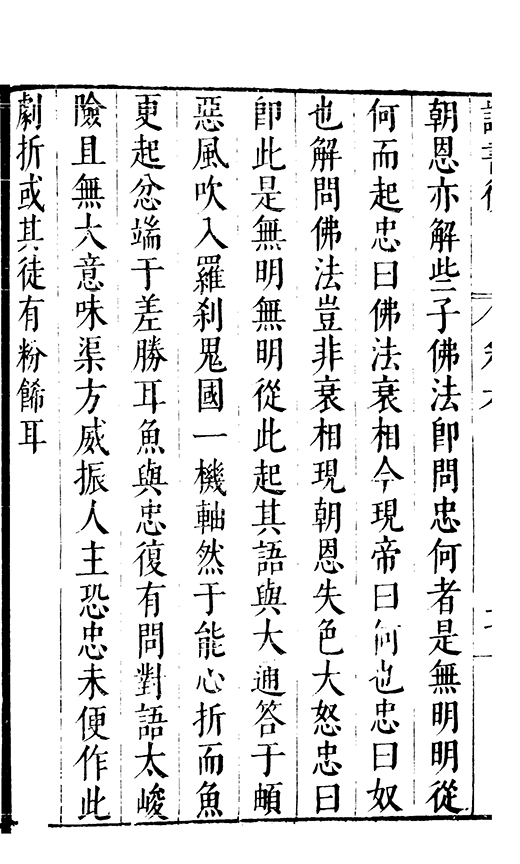 朝恩亦解些子佛法卽問忠何者是無明明從
何而起忠曰佛法衰相今現帝曰何也忠曰奴
也解問佛法豈非衰相現朝恩失色大怒忠曰
卽此是無明無明從此起其語與大通答于頔
惡風吹入羅刹鬼國一機軸然于能心折而魚
更起忿端于差勝耳魚與忠復有問對語太峻
險且無大意味渠方威振人主恐忠未便作此
劇折或其徒有粉餙耳